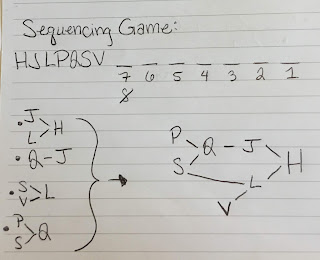 Sequencing Game:
HJLPQSV _ _ _ _ _ _ _
7 6 5 4 3 2 1
8
• J
L > H
• Q - J
• S
V > L
• P
S > Q
P
S > Q - J > H
L
V